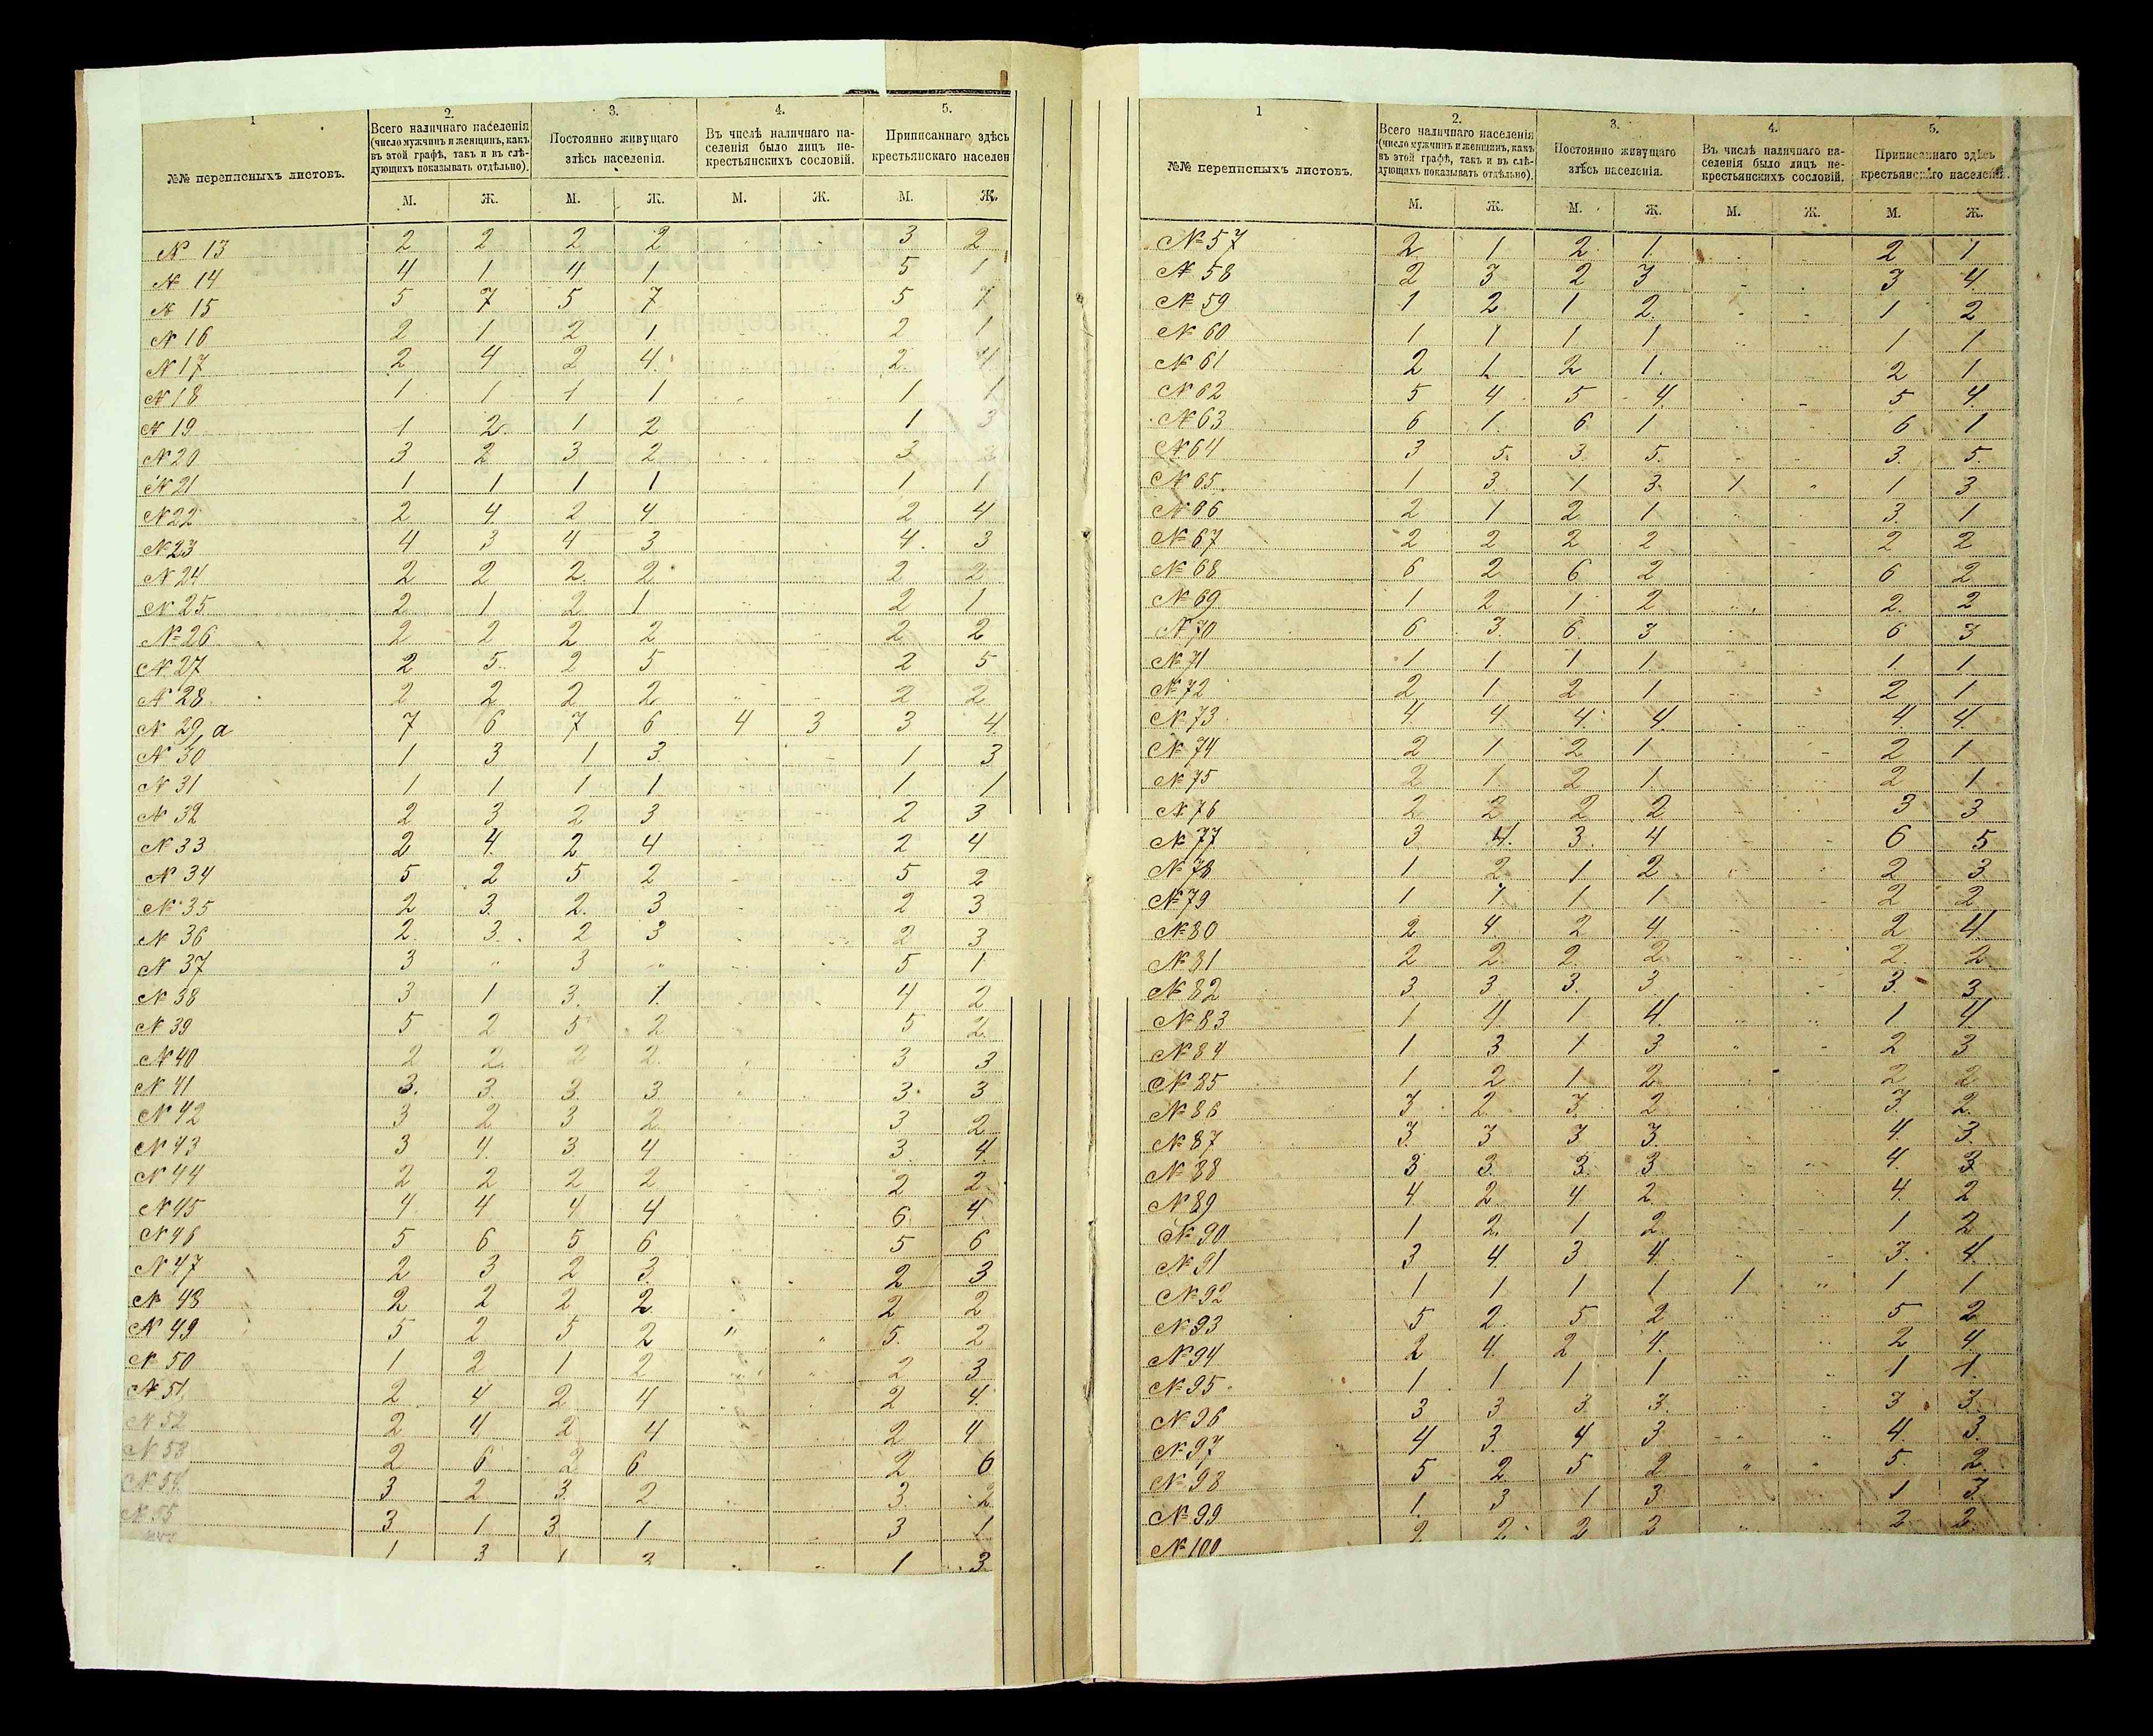 1
2.
3.
4.
5.
№№ переписныхъ листовъ.
Всего наличнаго населенія (число мужчинъ и женщинъ, какъ въ этой графѣ, такъ и въ слѣдующихъ показывать отдѣльно).
Постоянно живущаго здѣсь населенія.
Въ числѣ наличнаго населенія было лицъ не-крестьянскихъ сословій.
Приписаннаго здѣсь крестьянскаго населен
М. Ж. М. Ж. М. Ж. М. Ж.
№ 13 2 2 2 2 3 2
№ 14 4 1 4 1 5 1
№ 15 5 7 5 7 5 7
№ 16 2 1 2 1 2 1
№ 17 2 4 2 4 2 4
№ 18 1 1 1 1 1 1
№ 19 1 2 1 2 1 3
№ 20 3 2 3 2 3
№ 21 1 1 1 1 1 1
№ 22 2 4 2 4 2 4
№ 23 4 3 4 3 4 3
№ 24 2 2 2 2 2 2
№ 25 2 1 2 1 2 1
№ 26 2 2 2 2 2 2
№ 27 2 5 2 5 2 5
№ 28 2 2 2 2 2 2
№ 29, а 7 6 7 6 4 3 3 4
№ 30 1 3 1 3 1 3
№ 31 1 1 1 1 1 1
№ 32 2 3 2 3 2 3
№ 33 2 4 2 4 2 4
№ 34 5 2 5 2 5 2
№ 35 2 3 2 3 2 3
№ 36 2 3 2 3 2 3
№ 37 3 " 3 " 5 1
№ 38 3 1 3 1 4 2
№ 39 5 2 5 2 5 2
№ 40 2 2 2 2 3 3
№ 41 3 3 3 3 3 3
№ 42 3 2 3 2 3 2
№ 43 3 4 3 4 3 4
№ 44 2 2 2 2 2 2
№ 45 4 4 4 4 6 4
№ 46 5 6 5 6 5 6
№ 47 2 3 2 3 2 3
№ 48 2 2 2 2 2 2
№ 49 5 2 5 2 " " 5 2
№ 50 1 2 1 2 2 3
№ 51 2 4 2 4 2 4
№ 52 2 4 2 4 2 4
№ 53 2 6 2 6 2 6
№ 54 3 2 3 2 3 2
№ 55 3 1 3 1 3 1
1 3 1 3 1 3
1
2.
3.
4.
5.
№№ переписныхъ листовъ.
Всего наличнаго населенія (число мужчинъ и женщинъ, какъ въ этой графѣ, такъ и въ слѣдующихъ показывать отдѣльно).
Постоянно живущаго здѣсь населенія.
Въ числѣ наличнаго населенія было лицъ не-крестьянскихъ сословій.
Приписаннаго здѣсь крестьянскаго населенія.
М. Ж. М. Ж. М. Ж. М. Ж.
№ 57 2 1 2 1 2 1
№ 58 2 3 2 3 3 4
№ 59 1 2 1 2 1 2
№ 60 1 1 1 1 1 1
№ 61 2 1 2 1 2 1
№ 62 5 4 5 4 5 4
№ 63 6 1 6 1 6 1
№ 64 3 5 3 5 3 5
№ 65 1 3 1 3 1 " 1 3
№ 66 2 1 2 1 3 1
№ 67 2 2 2 2 2 2
№ 68 6 2 6 2 6 2
№ 69 1 2 1 2 2 2
№ 70 6 3 6 3 6 3
№ 71 1 1 1 1 1 1
№ 72 2 1 2 1 2 1
№ 73 4 4 4 4 4 4
№ 74 2 1 2 1 2 1
№ 75 2 1 2 1 2 1
№ 76 2 2 2 2 3 3
№ 77 3 4 3 4 6 5
№ 78 1 2 1 2 2 3
№ 79 1 1 1 1 2 2
№ 80 2 4 2 4 2 4
№ 81 2 2 2 2 2 2
№ 82 3 3 3 3 3 3
№ 83 1 4 1 4 1 4
№ 84 1 3 1 3 2 3
№ 85 1 2 1 2 2 2
№ 86 3 2 3 2 3 2
№ 87 3 3 3 3 4 3
№ 88 3 3 3 3 4 3
№ 89 4 2 4 2 4 2
№ 90 1 2 1 2 1 2
№ 91 3 4 3 4 3 4
№ 92 1 1 1 1 1 " 1 1
№ 93 5 2 5 2 5 2
№ 94 2 4 2 4 2 4
№ 95 1 1 1 1 1 1
№ 96 3 3 3 3 3 3
№ 97 4 3 4 3 4 3
№ 98 5 2 5 2 5 2
№ 99 1 3 1 3 1 3
№ 100 2 2 2 2 2 2